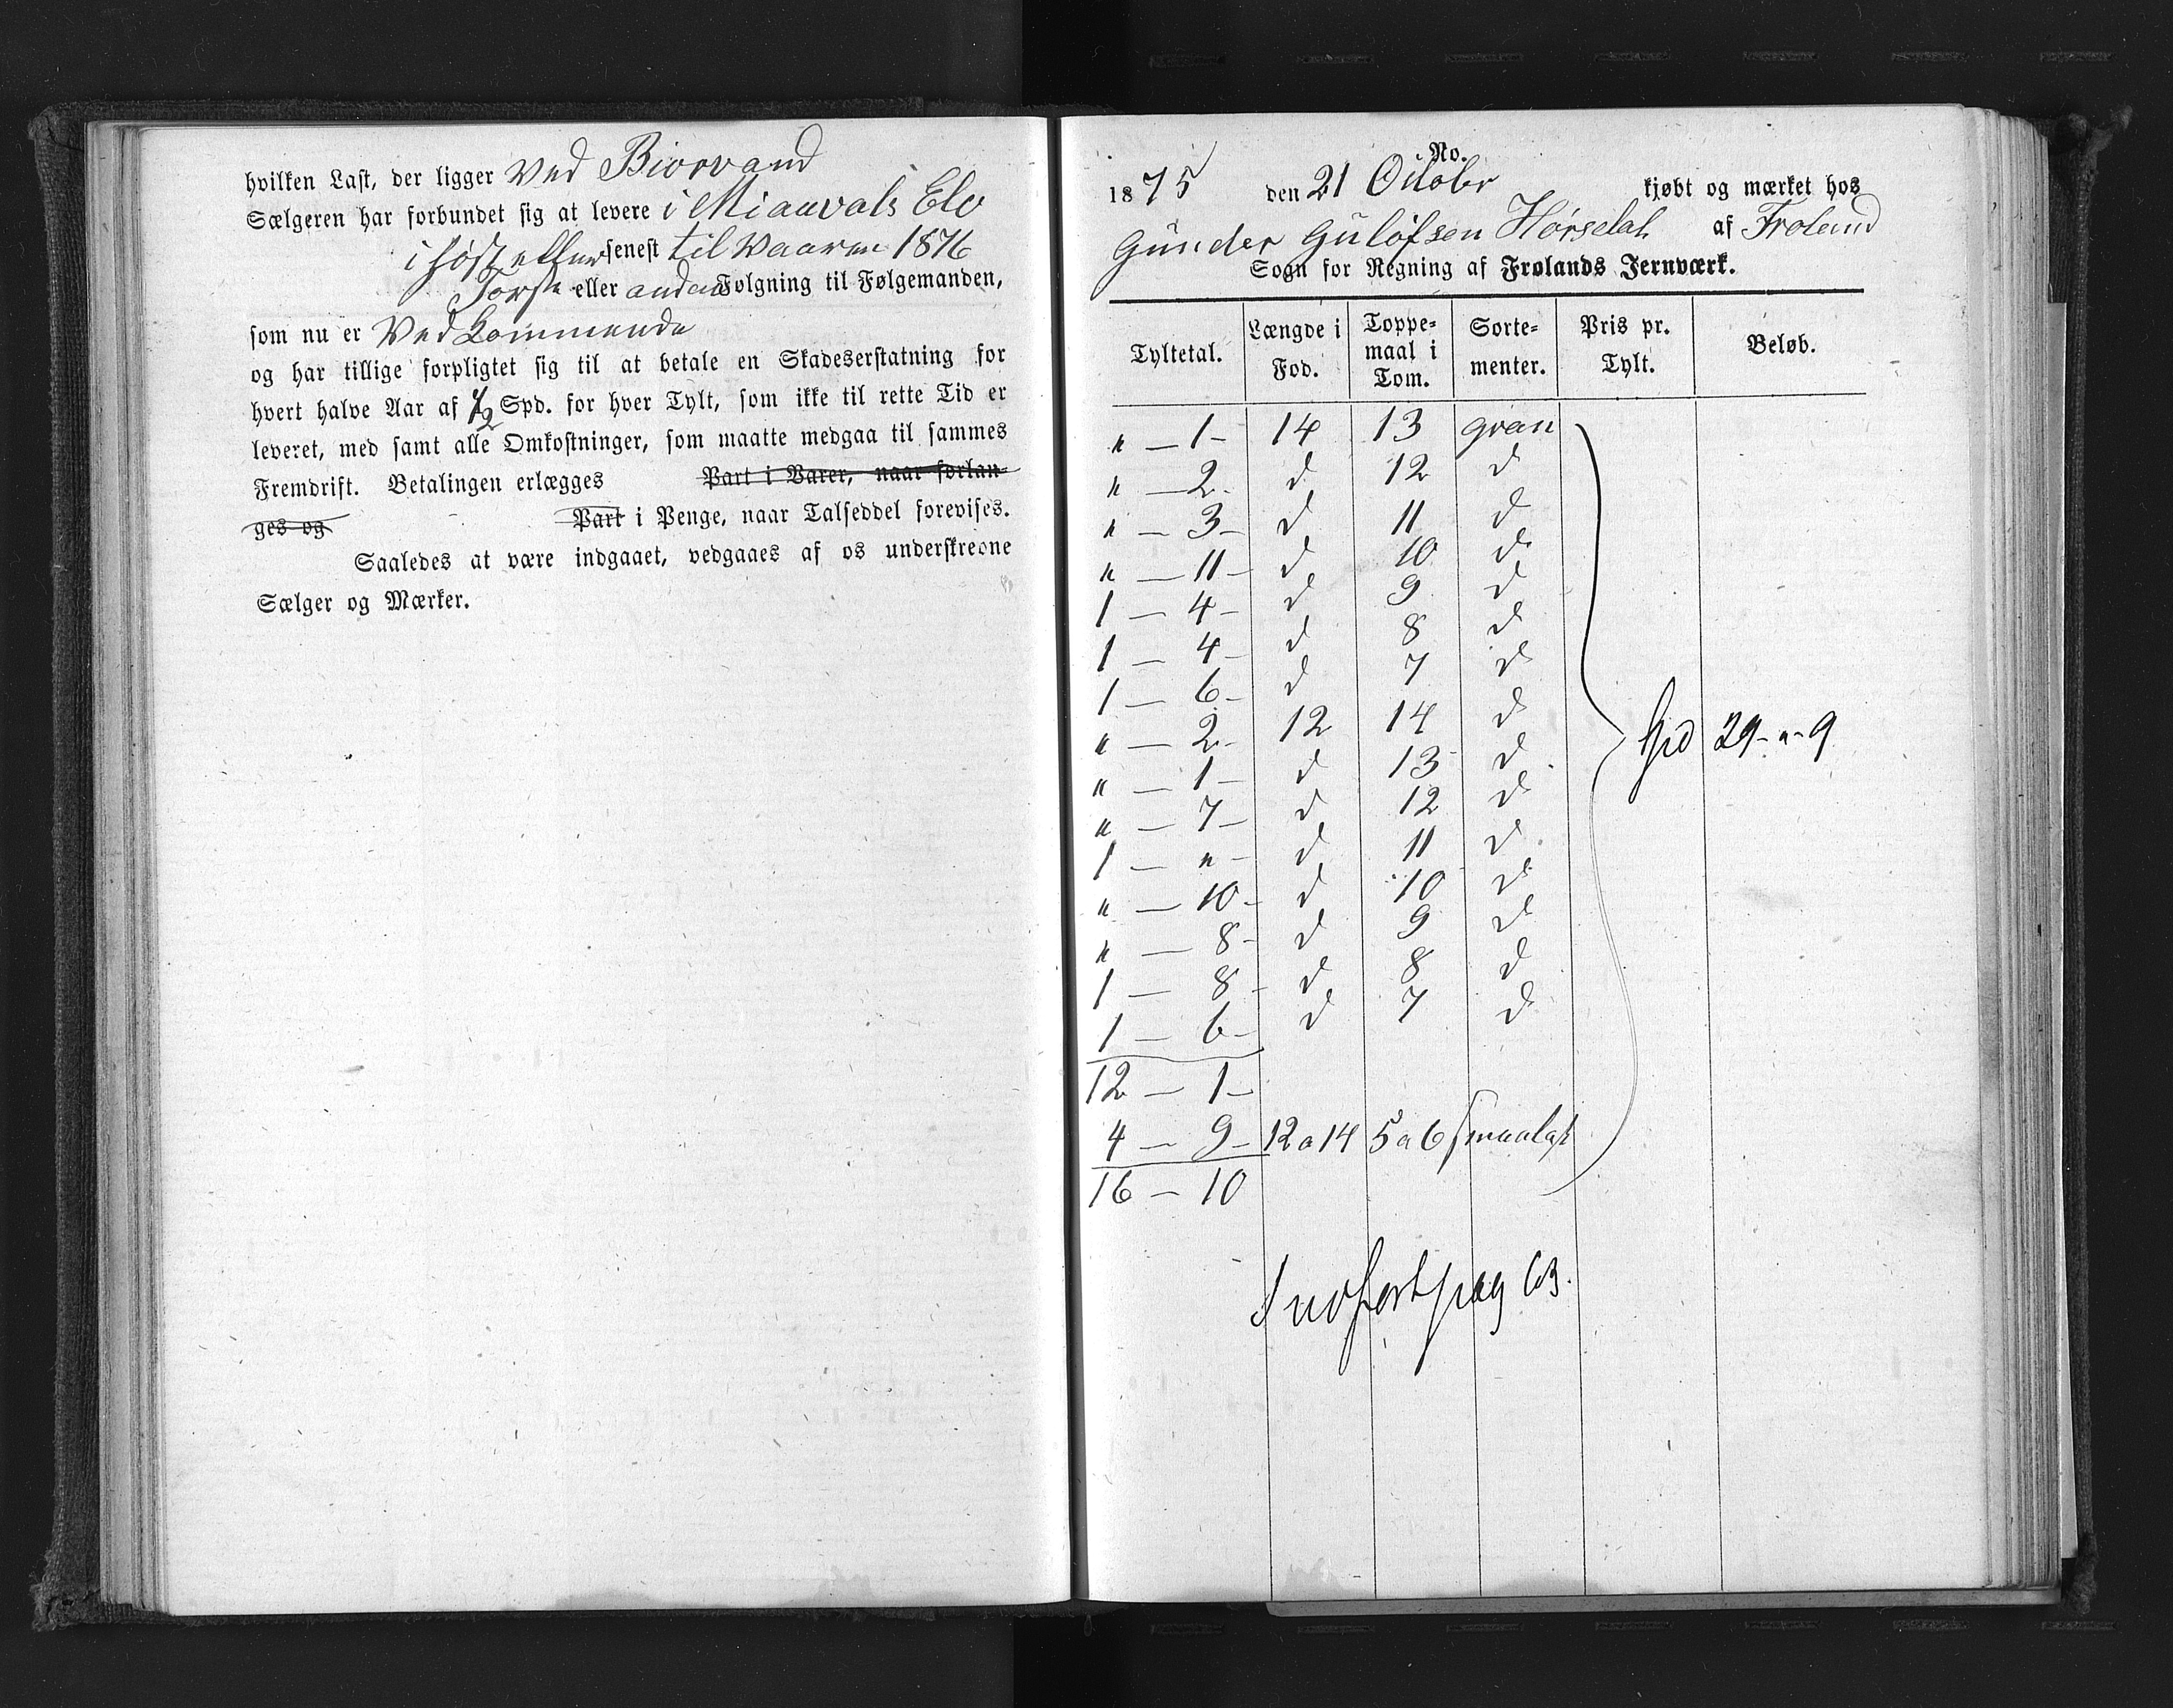 hvilken Last, der ligger ved Biorvand
Sælgeren har forbundet sig at levere i Miauvals Elv
i høst eller senest til Vaaren 1876
Første eller anden Følgning til Følgemanden,
som nu er Vedkommende
og har tillige forpligtet sig til at betale en Skadeserstatning for
hvert halve Aar af 1/2 Spd. for hver Tylt, som ikke til rette Tid er
leveret, med samt alle Omkostninger, som maatte medgaa til sammes
Fremdrift. Betalingen erlægges Part i Varer, naar forlan-
ges og Part i Penge, naar Talseddel forevises.
Saaledes at være indgaaet, vedgaaes af os underskrevne
Sælger og Mærker.
No.
1875 den 21 Octobr kjøbt og mærket hos
Gunder Gulofsen Hørsdal af Froland
Sogn for Regning af Frolands Jernværk.
Tyltetal. Længde i Fod. Toppe- maal i Tom. Sorte- menter. Pris pr. Tylt. Beløb.
" — 1 — 14 13 gran
" — 2 — d 12 d
" — 3 — d 11 d
" — 11 — d 10 d
1 — 4 — d 9 d
1 — 4 — d 8 d
1 — 6 — d 7 d
" — 2 — 12 14 d
29 - " - 9
" — 1 — d 13 d
" — 7 — d 12 d
1 — " — d 11 d
" — 10 — d 10 d
" — 8 — d 9 d
1 — 8 — d 8 d
1 — 6 — d 7 d
12 — 1 —
4 — 9 — 12 a 14 5 a 6 smaalast
16 — 10
Indført pag 63.